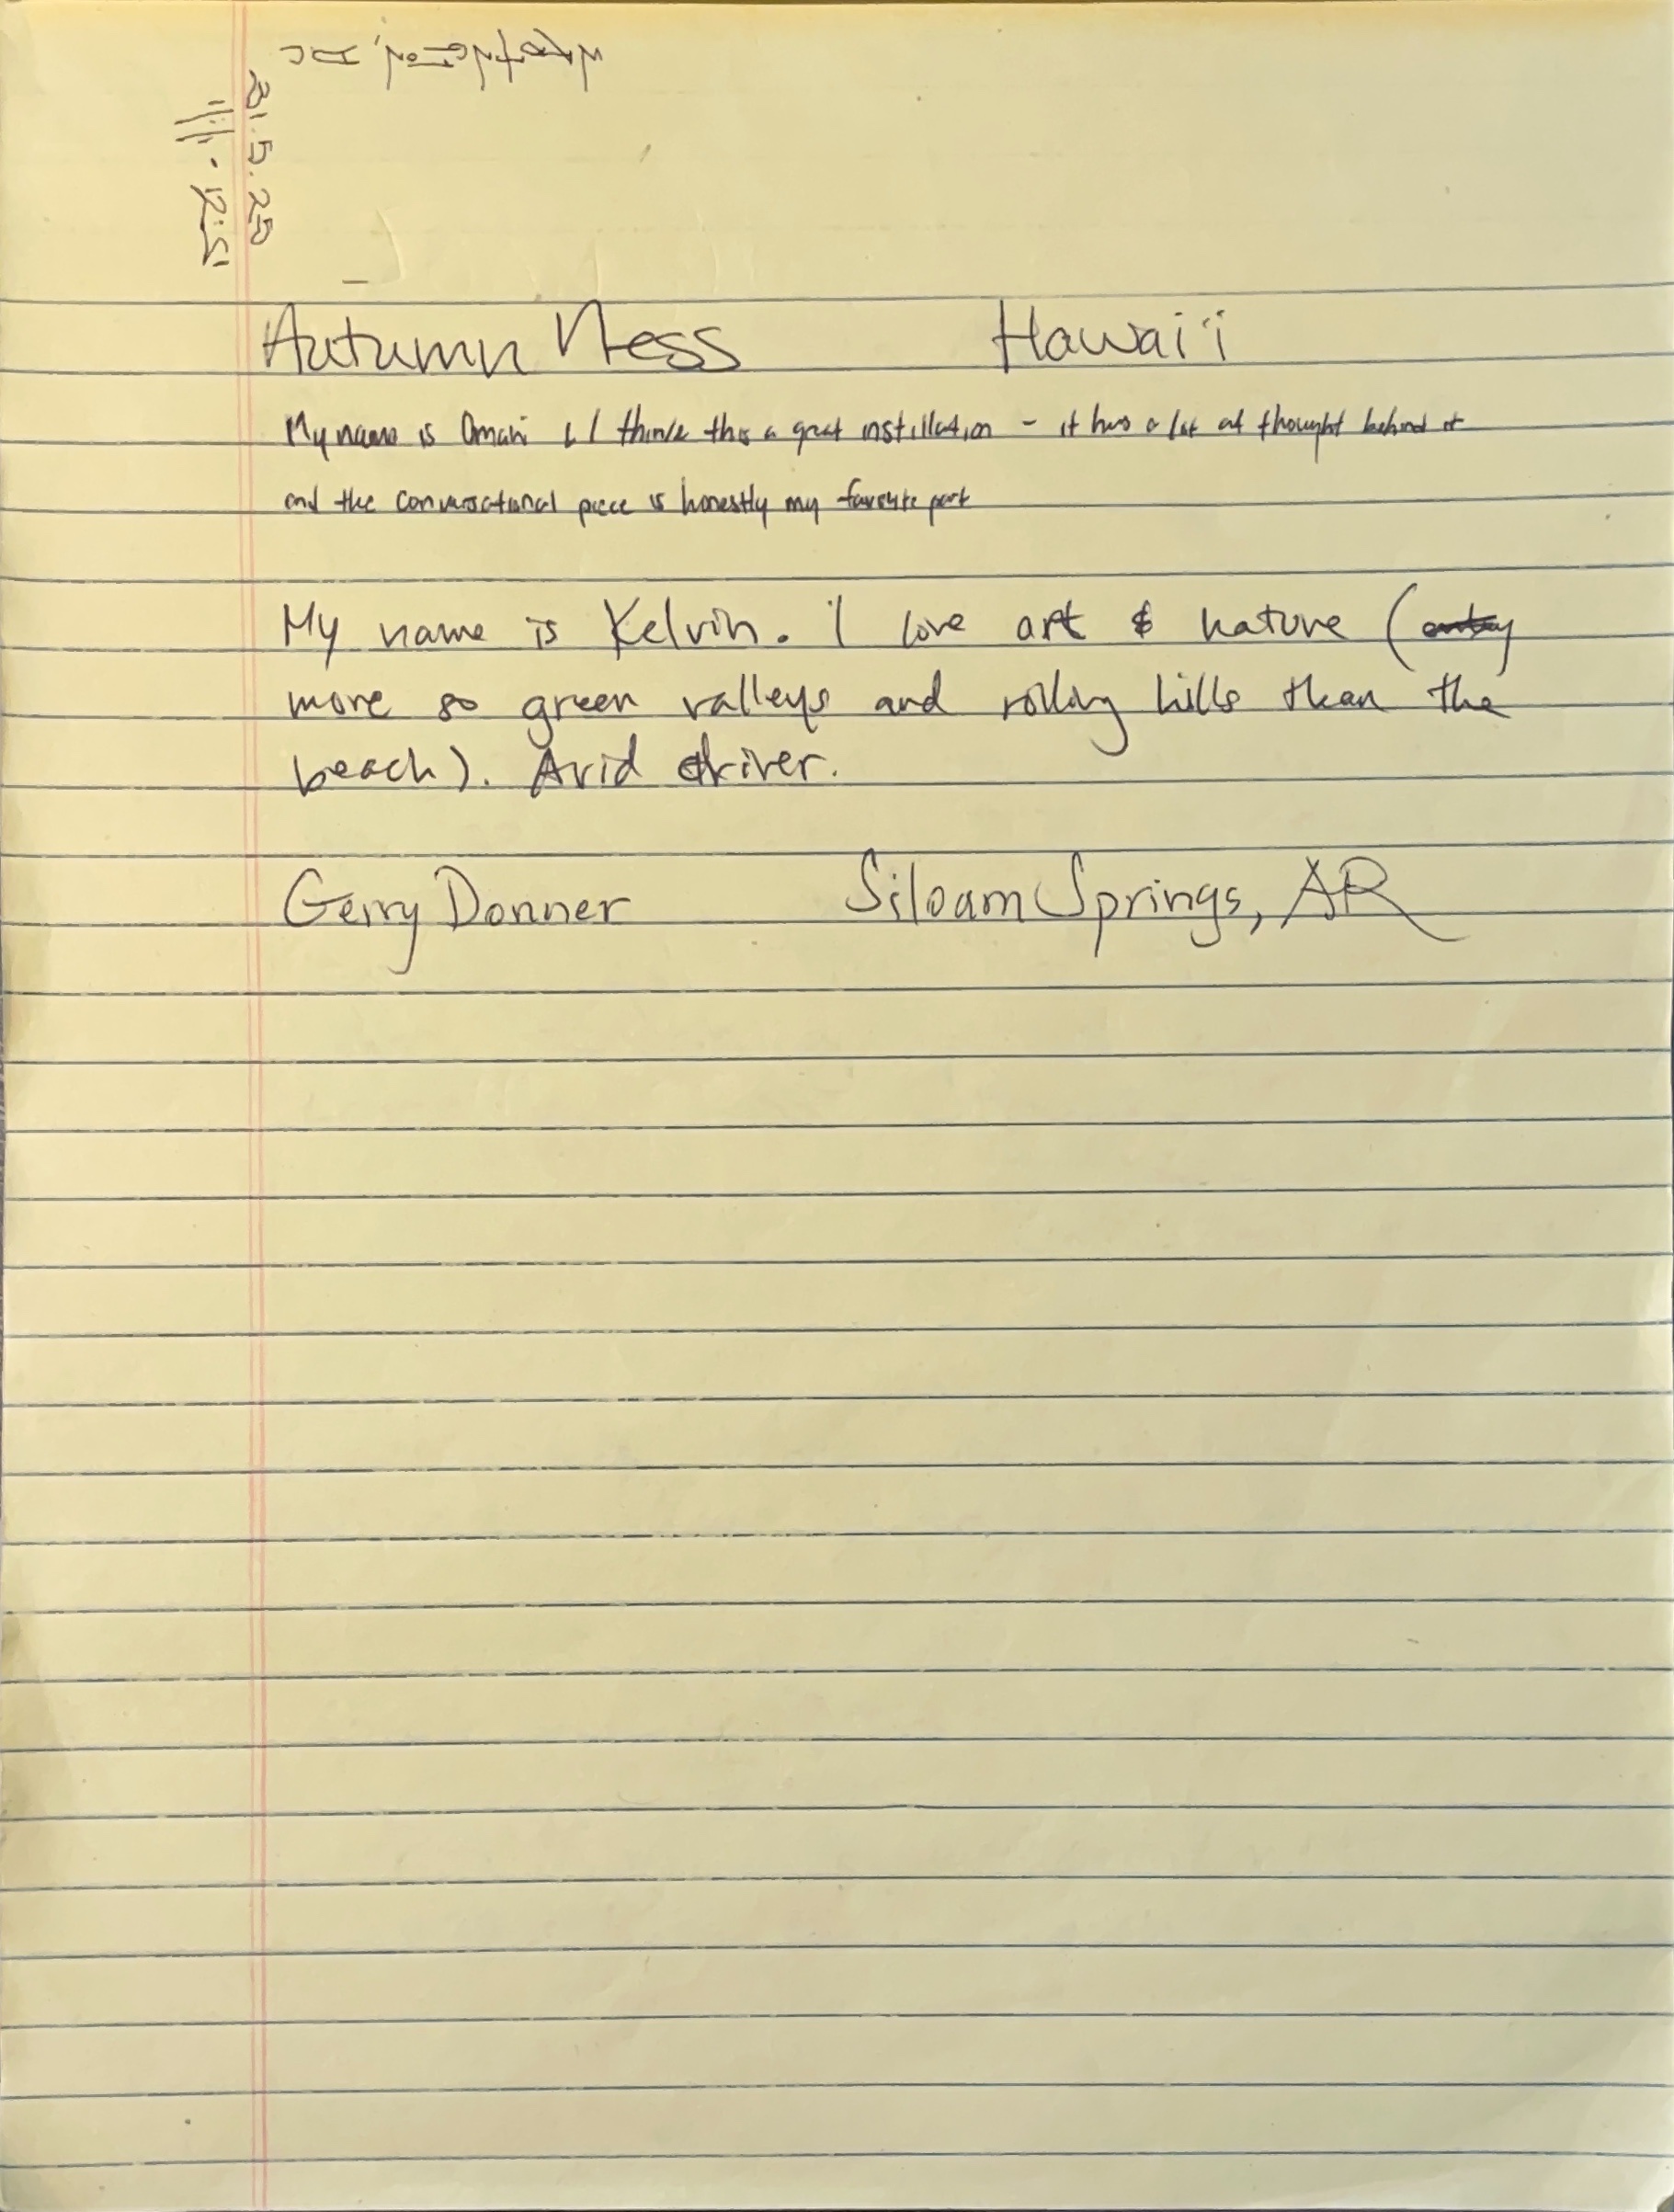 31.5.25
12:51
Autumn Ness Hawai'i
My name is Omari & I think this a great instillation - it has a lot of thought behind it
and the conversational piece is honestly my favorite part
My name is Kelvin. I love art & nature (
more so green valleys and rolling hills than the
beach). Avid driver.
Gerry Donner Siloam Springs, AR